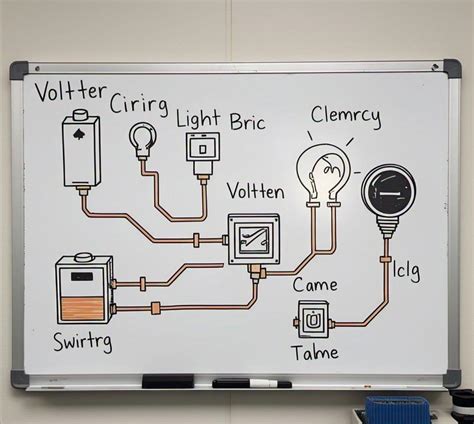 Voltter
Cirirg
Light Bric
Clemrcy
Voltten
Iclg
Came
Swirtrg
Tame